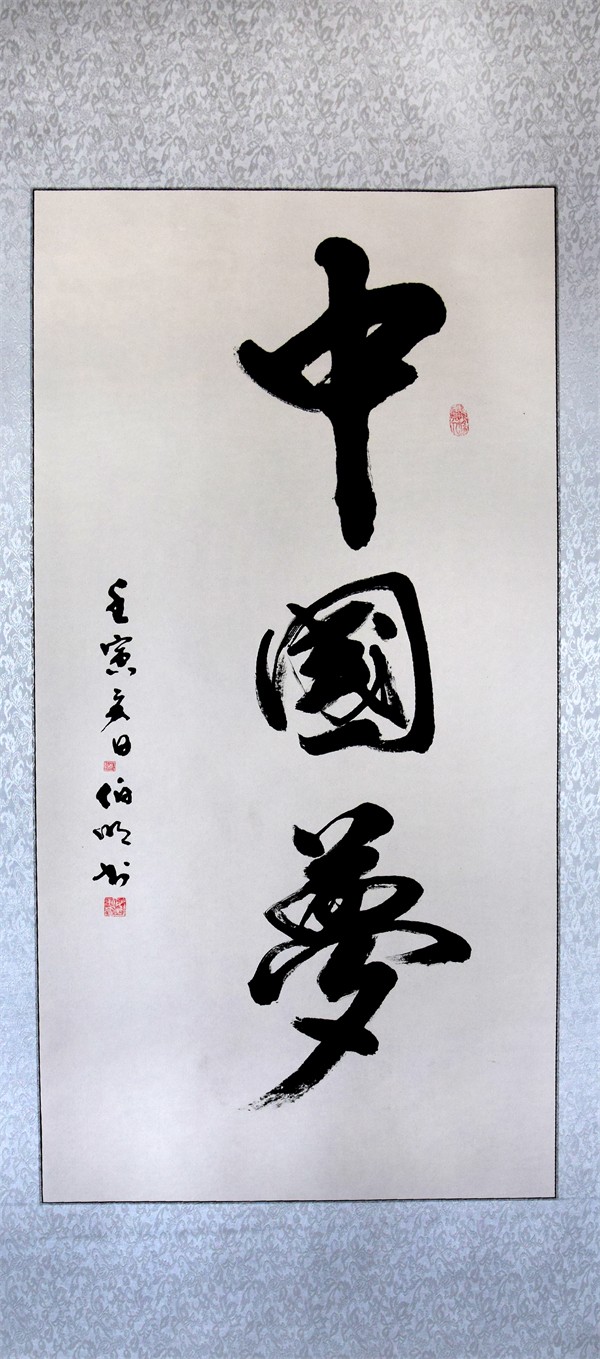 中國夢
壬寅夏日伯明书